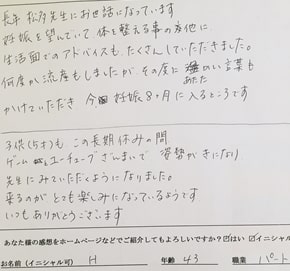 長年 松坊先生にお世話になっています
妊娠を望んでいて 体を整える事の他に
生活面でのアドバイスも、たくさんしていただきました。
何度か流産もしましたが、その度に あたたかい言葉も
かけていただき 今 妊娠8ヶ月に入るところです
子供(5才)も この長期休みの間
ゲーム ユーチューブざんまいで 姿勢が きになり
先生にみていただくようになりました。
来るのが とても楽しみになっているようです
いつもありがとうございます
あなた様の感想をホームページなどでご紹介してもよろしいですか?☑はい ☑イニシャル
お名前(イニシャル可) H 年齢 43 職業 パート